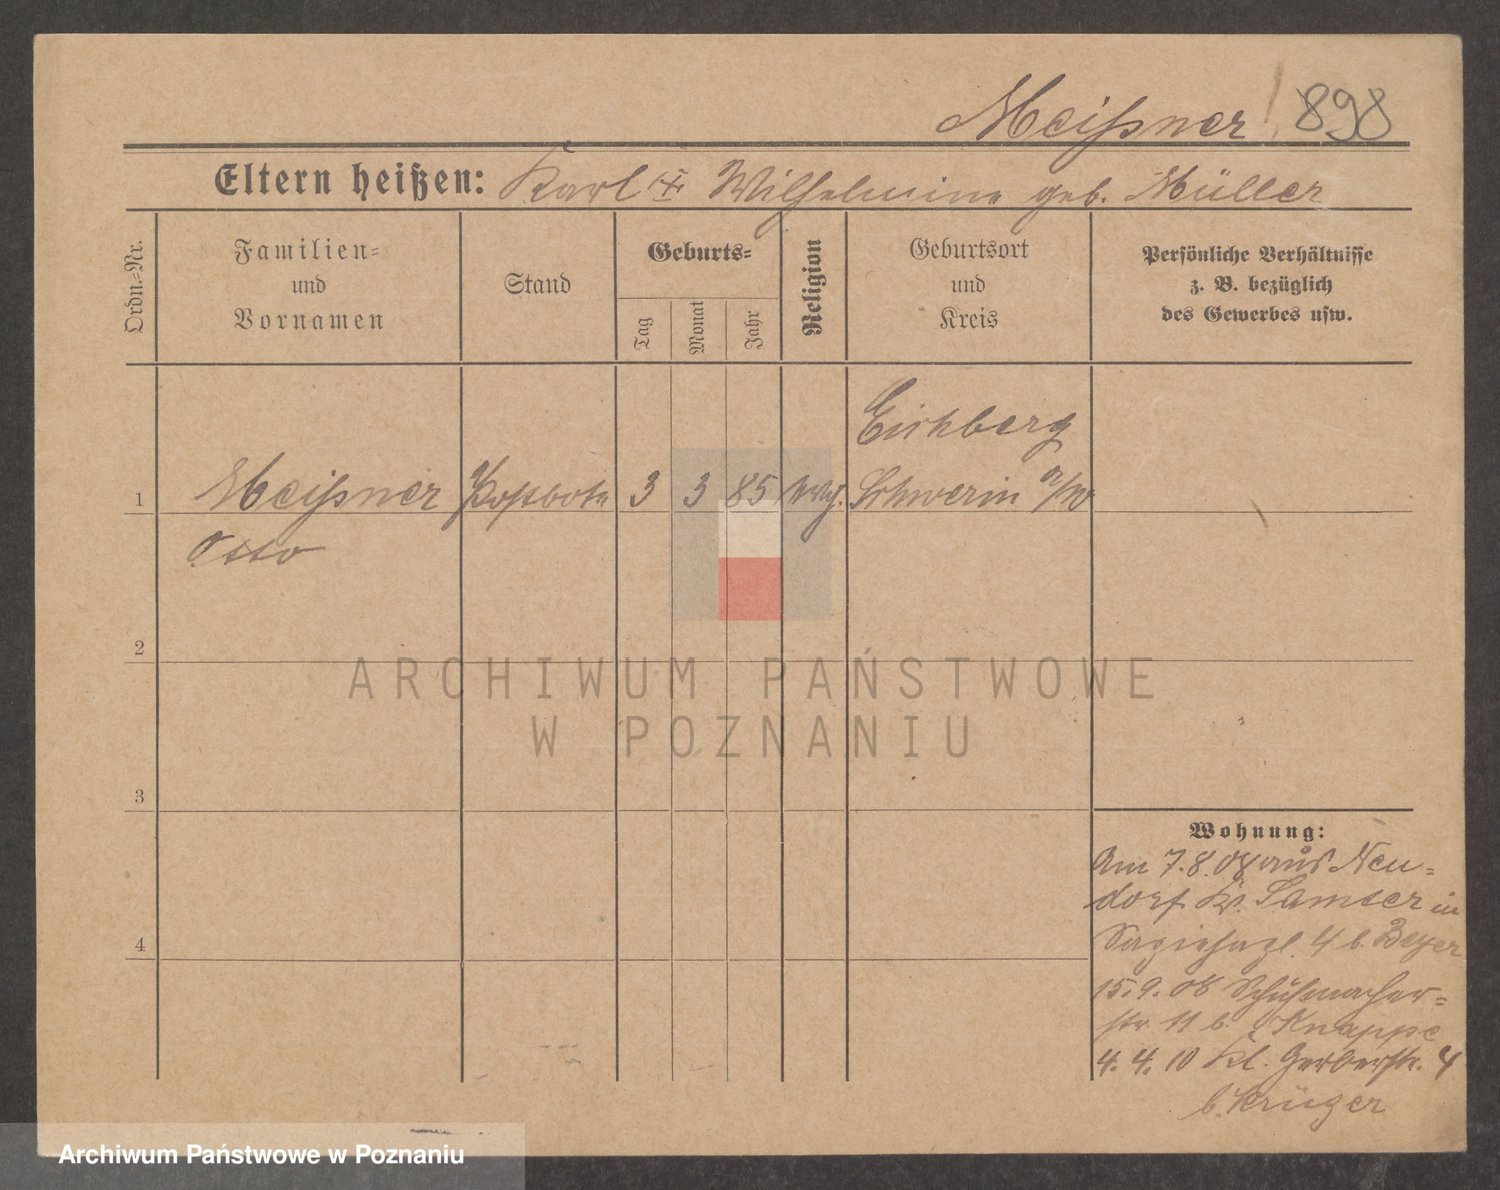 Meißner 898
Eltern heißen: Karl Wilhelmine geb. Müller
Ordn.-Nr.
Familien-
und
Vornamen
Stand
Geburts-
Tag
Monat
Jahr
Religion
Geburtsort
und
Kreis
Persönliche Verhältnisse
z. B. bezüglich
des Gewerbes usw.
Eichberg
1 Meißner Postbote 3 3 85 Schwerin a/W
Otto
2
ARCHIWUM PAŃSTWOWE
W POZNANIU
3
Wohnung:
Am 7.8.08 aus Neu-
dorf Kr. Samter in
4 b. Beyer
4
15.9.08 Schuhmacher-
str. 11 b. Knappe
4.4.10 Kl. Gerberstr. 4
b. Krüger
Archiwum Państwowe w Poznaniu